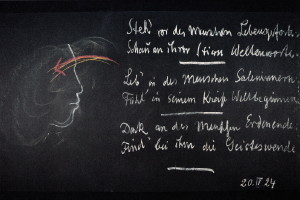 Steh' vor des Menschen Lebenspforte:
Schau an ihrer Stirn Weltenworte.
Leb' in des Menschen Seeleninnern
Fühl' in seinem Kreise Weltbeginnen
Denk an des Menschen Erdenende:
Find' bei ihm die Geisteswende
20. IV 24